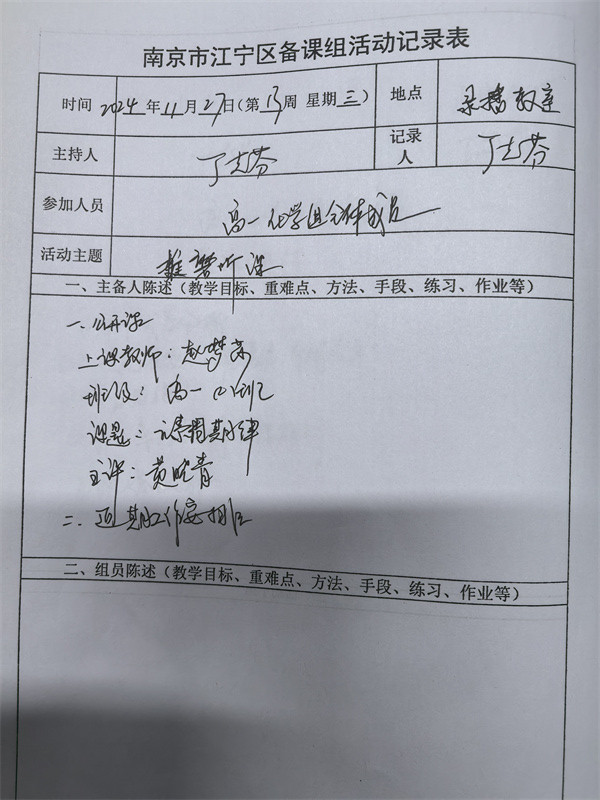 南京市江宁区备课组活动记录表
时间 2024年11月27日(第13周 星期三) 地点 录播教室
主持人 丁志芬 记录人 丁志芬
参加人员 高一化学组全体成员
活动主题 听课
一、主备人陈述(教学目标、重难点、方法、手段、练习、作业等)
一、公开课
上课教师:赵梦
班级:高一 班
课题:元素周期律
主评:黄晓青
二、近期工作安排
二、组员陈述(教学目标、重难点、方法、手段、练习、作业等)